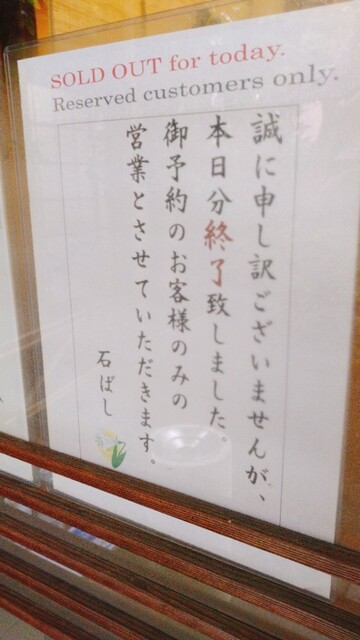 SOLD OUT for today.
Reserved customers only.
誠に申し訳ございませんが、
本日分終了致しました。
御予約のお客様のみの
営業とさせていただきます。
石ばし